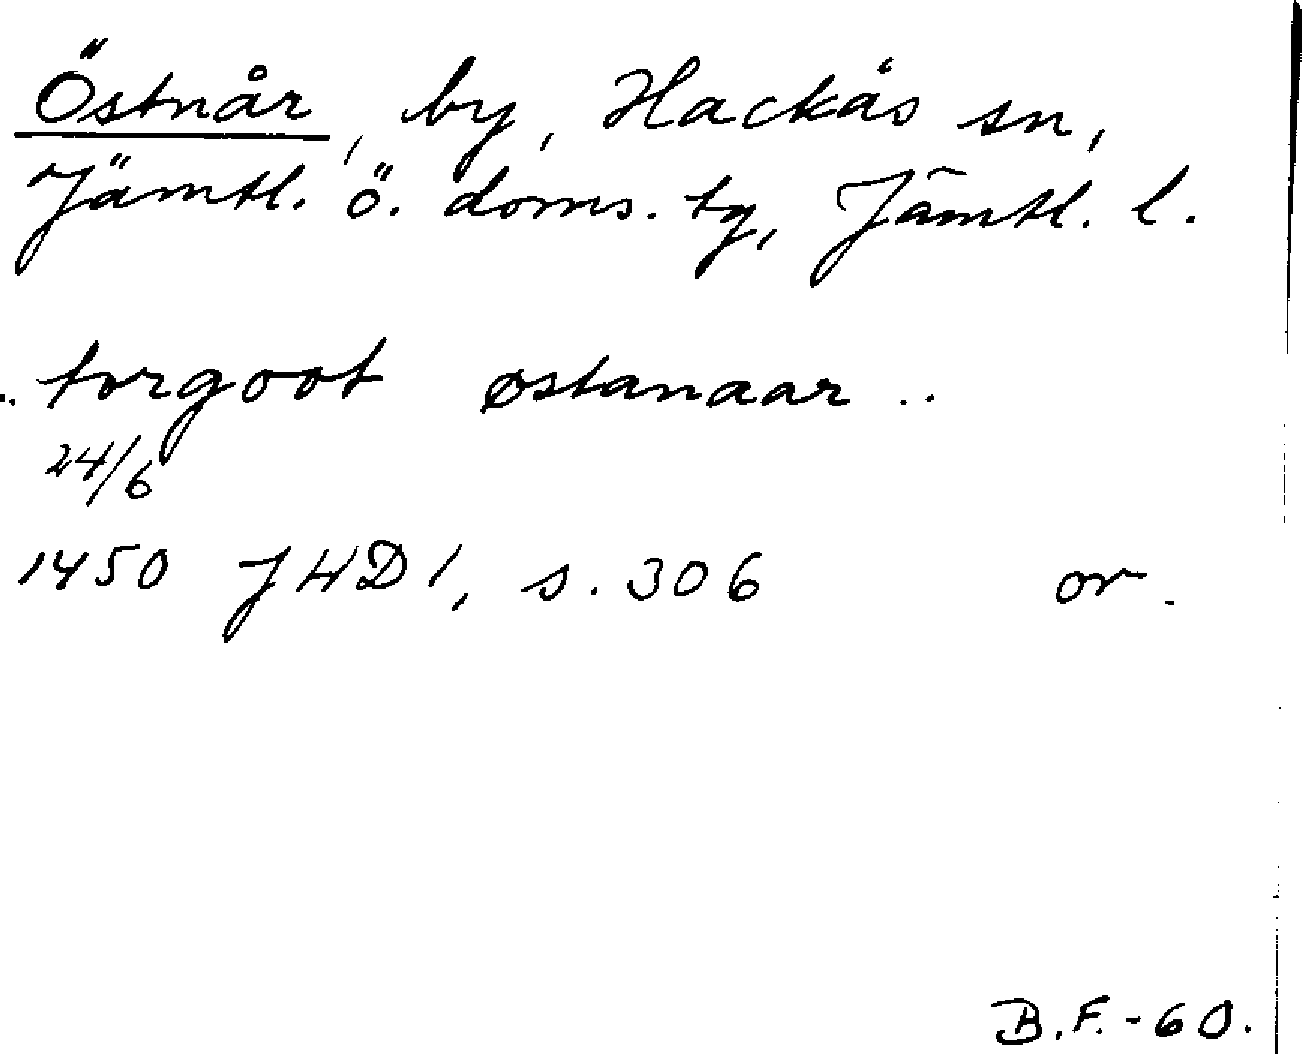 Östnår, by, Hackås sn,
Jämtl. ö. doms. tg, Jämtl. l.
.. torgoot østanaar ..
24/6
1450 JHD 1, s. 306 or.
B.F.-60.